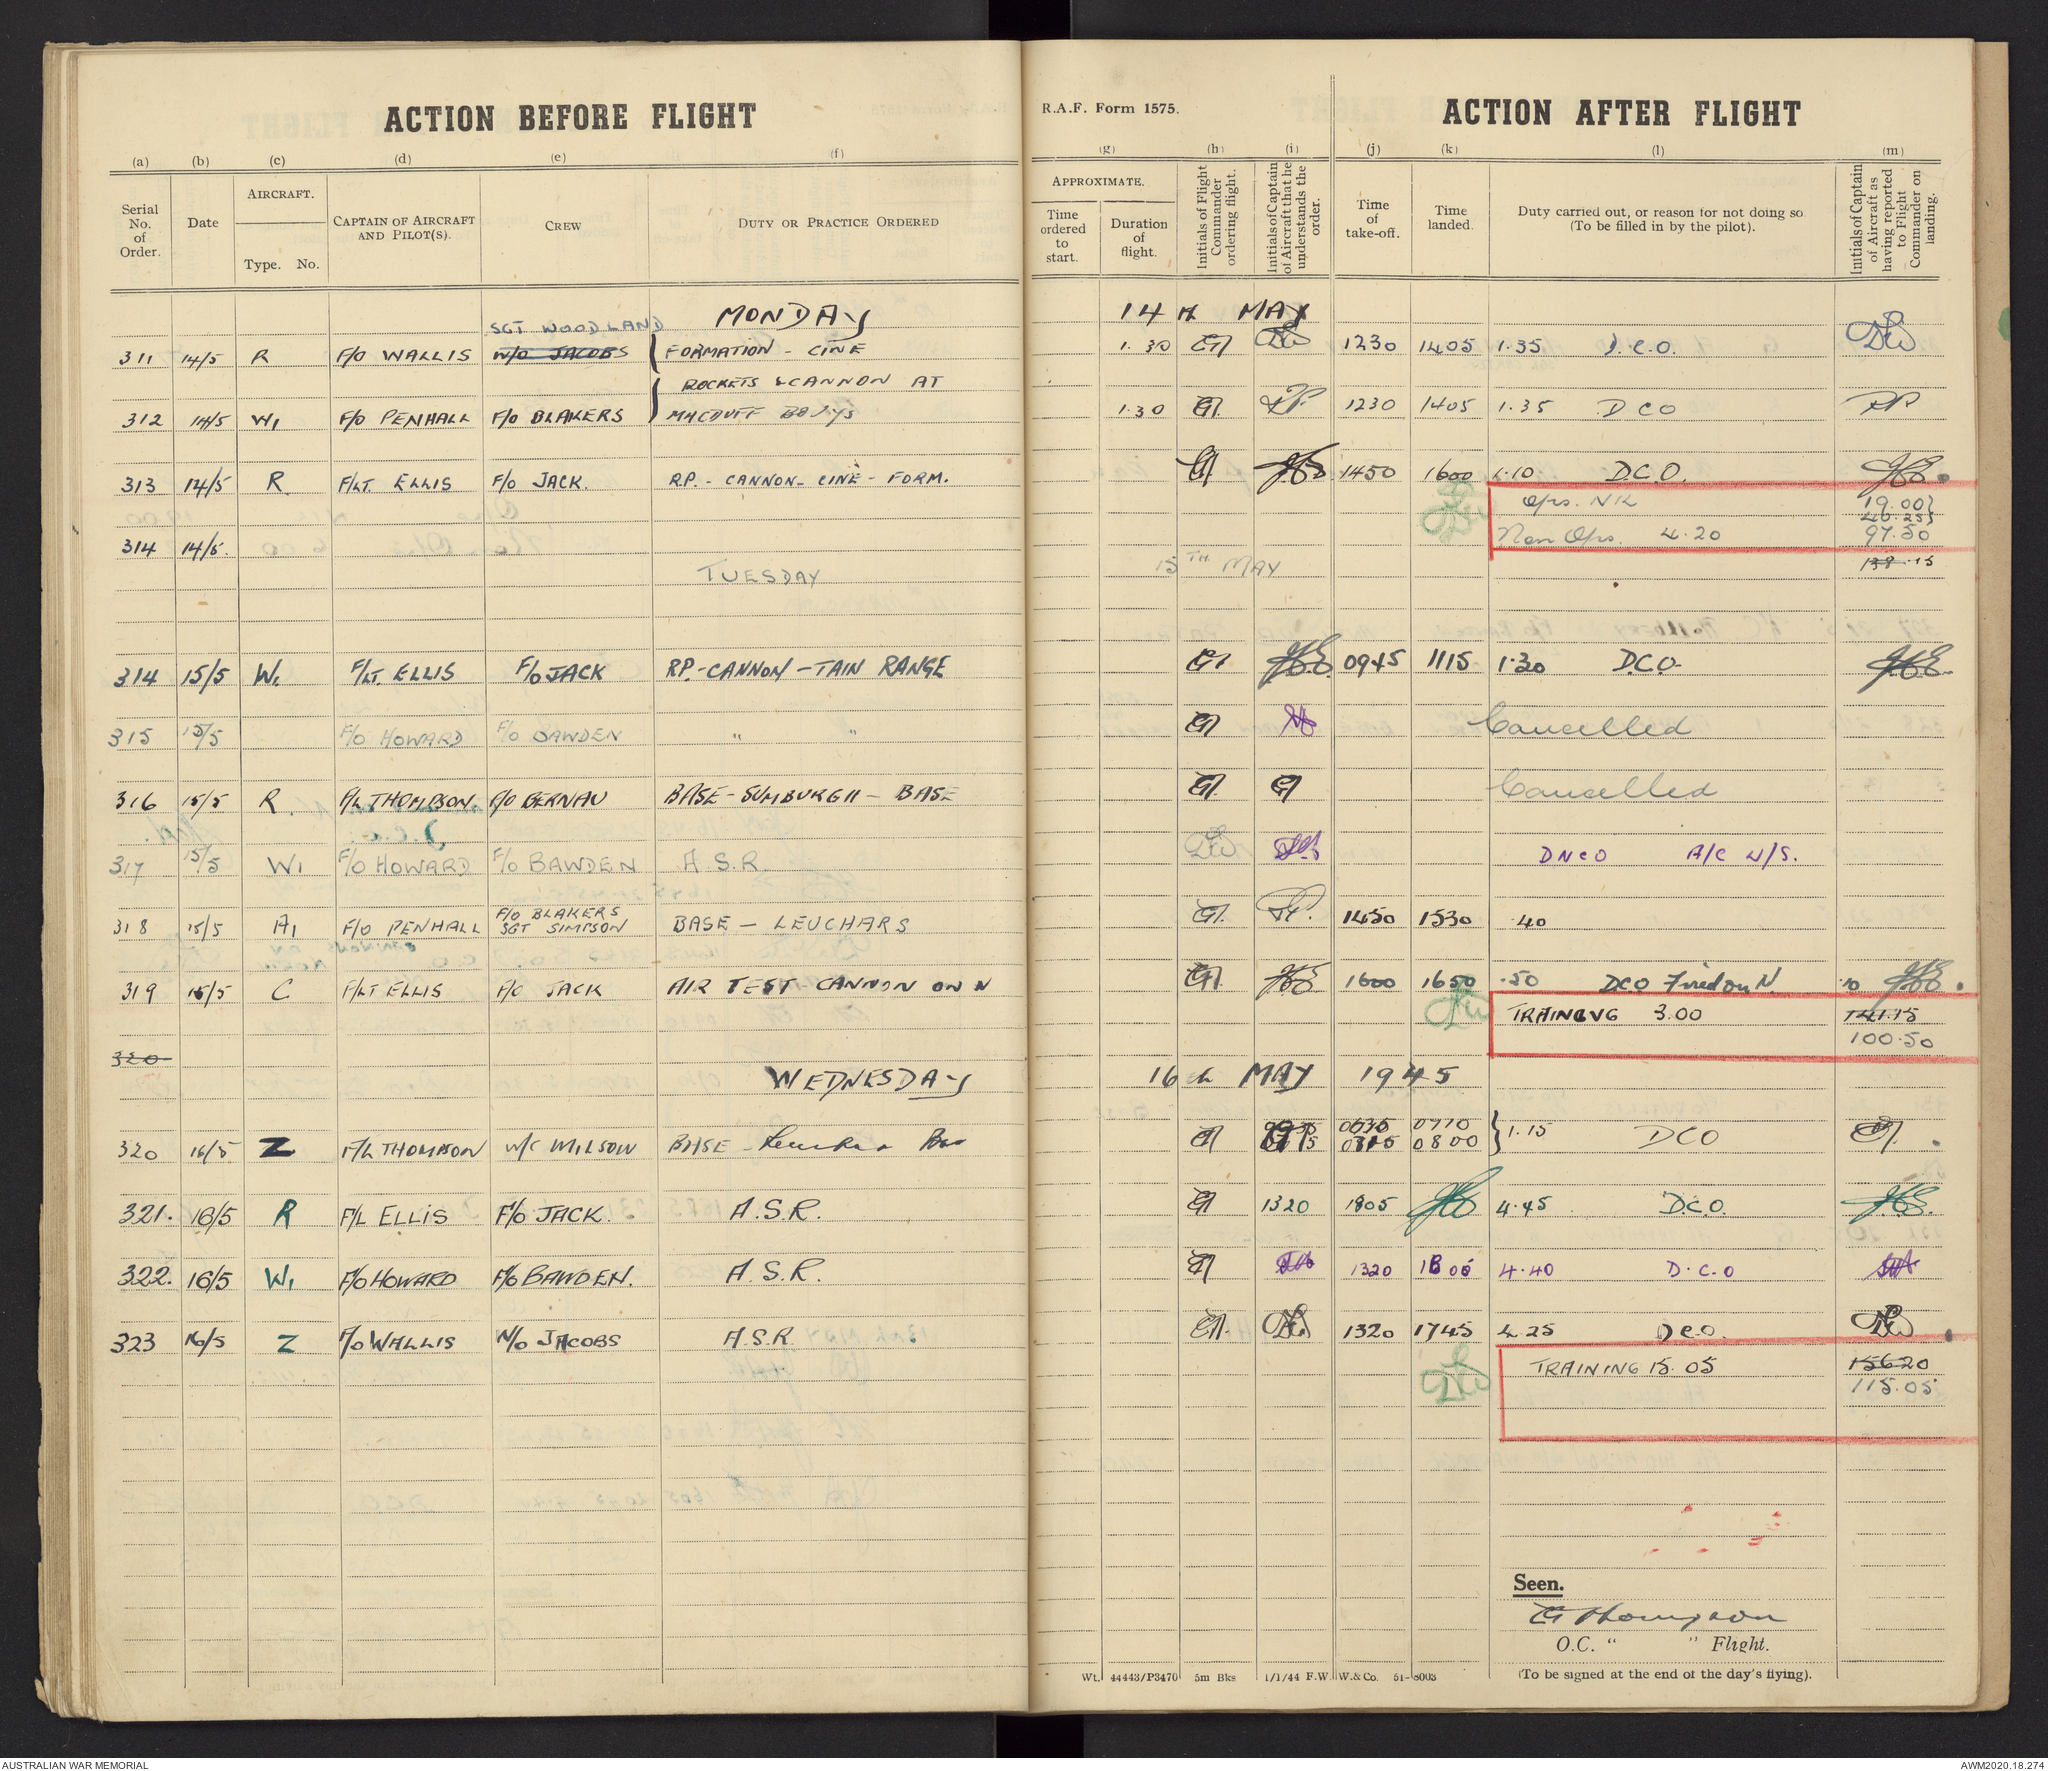 ACTION BEFORE FLIGHT
R.A.F. Form 1575.
ACTION AFTER FLIGHT
(a) (b) (c) (d) (e) (f) (g) (h) (i) (j) (k) (l) (m)
Serial No. of Order.
Date
AIRCRAFT.
Type. No.
CAPTAIN OF AIRCRAFT AND PILOT(S).
CREW
DUTY OR PRACTICE ORDERED
APPROXIMATE.
Time ordered to start.
Duration of flight.
Initials of Flight Commander ordering flight.
Initials of Captain of Aircraft that he understands the order.
Time of take-off.
Time landed.
Duty carried out, or reason for not doing so
(To be filled in by the pilot).
Initials of Captain of Aircraft as having reported to Flight Commander on landing.
MONDAY 14th MAY
SGT WOODLAND
311 14/5 R F/O WALLIS W/O JACOBS FORMATION - CINE 1.30 1230 1405 1.35 D.C.O.
ROCKETS & CANNON AT
312 14/5 W1 F/O PENHALL F/O BLAKERS MACDUFF 1.30 1230 1405 1.35 DCO
313 14/5 R F/LT. ELLIS F/O JACK. R.P. - CANNON - CINE - FORM. 1450 1600 1.10 D.C.O.
Ops. NIL 19.00
46.25
314 14/5. Non Ops. 4.20 97.50
TUESDAY 15TH MAY 138.15
314 15/5 W1 F/LT. ELLIS F/O JACK RP.-CANNON-TAIN RANGE 0945 1115 1.30 D.C.O.
315 15/5 F/O HOWARD F/O BAWDEN " " Cancelled
316 15/5 R. F/L THOMPSON F/O BERNAU BASE - SUMBURGH - BASE Cancelled
317 15/5 W1 F/O HOWARD F/O BAWDEN A.S.R. DNCO A/C U/S.
318 15/5 A1 F/O PENHALL F/O BLAKERS SGT SIMPSON BASE - LEUCHARS 1450 1530 .40
319 15/5 C F/LT ELLIS F/O JACK AIR TEST CANNON ON N 1600 1650 .50 DCO Fired on N. .10
TRAINING 3.00 141.15
100.50
320
WEDNESDAY 16th MAY 1945
0635 0710
320 16/5 Z F/L THOMPSON W/C MILSON BASE - 0815 0800 1.15 DCO
321. 16/5 R F/L ELLIS F/O JACK. A.S.R. 1320 1805 4.45 D.C.O.
322. 16/5 W1 F/O HOWARD F/O BAWDEN. A.S.R. 1320 1800 4.40 D.C.O
323 16/5 Z F/O WALLIS W/O JACOBS A.S.R 1320 1745 4.25 DCO.
TRAINING 15.05 156.20
115.05
Seen.
G Thompson
O.C. " " Flight.
Wt. 44443/P3470 5m Bks 1/1/44 F.W. W.&Co. 51-8003
(To be signed at the end of the day's flying).
AUSTRALIAN WAR MEMORIAL
AWM2020.18.274